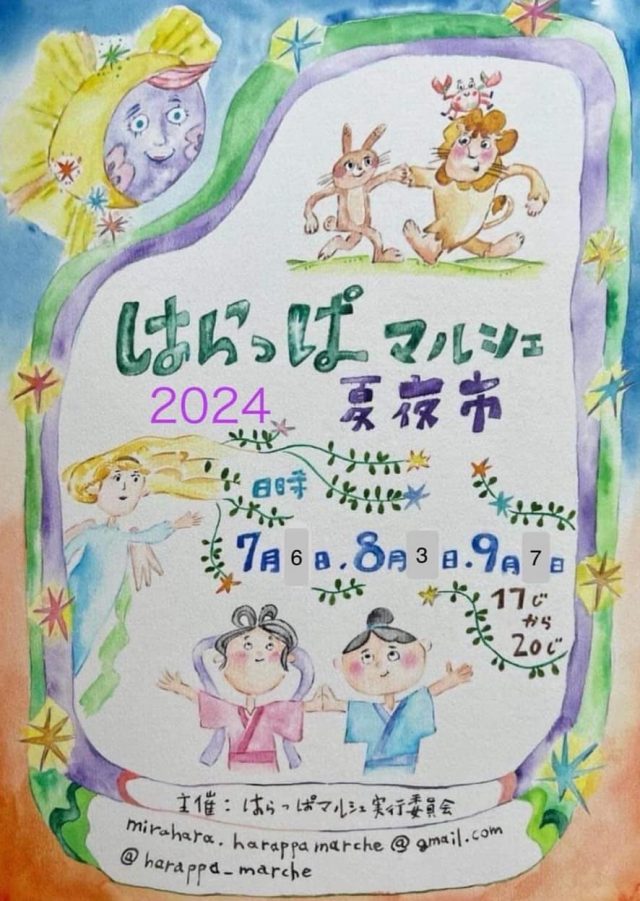 はらっぱマルシェ
2024 夏夜市
日時
7月6日.8月3日.9月7日
17じ
から
20じ
主催：はらっぱマルシェ実行委員会
mirahara.harappamarche@gmail.com
@harappa_marche